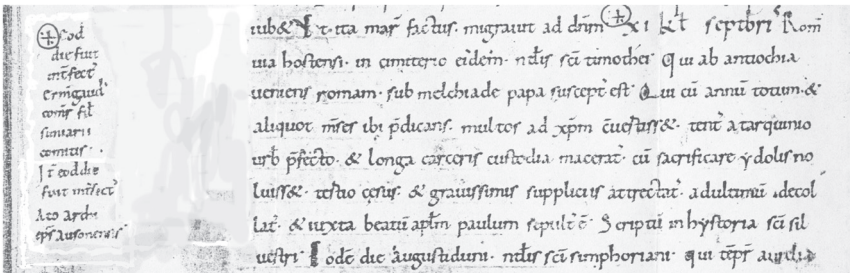 Cod
die fuit
int̄fect᾽
Ermīgaud᾽
com̄s fil᾽
suniarii
comitis ·
It̄ eod die
fuit int̄fect᾽
Ato archi
ep̄s ausonensis
iub& It̄. ita mar̄ factus. migrauit ad dn̄m XI kl̄ septbri᾽ Rom̄
uia hostensi. in cimiterio eidem. nt̄lis sc̄i timothei Qui ab antiochia
ueniens romam. sub melchiade papa suscept᾽ est. Qui cū annū totum. &
aliquot m̄ses ibi p̄dicans. multos ad xp̄m cūertiss&. tent᾽ a tarquinio
urb᾽ p̄fecto. & longa carceris custodia macerat᾽. cū sacrificare ydolis no
luiss&. tertio cesus. & grauissimis suppliciis attrectat᾽. ad ultimū decol
lat᾽. & iuxta beatū apl̄m paulum sepult᾽ ē. Scriptū in hystoria sc̄i sil
uestri. Eodē die augustiduni. nt̄lis sc̄i simphoriani. qui tēpr̄ aurelia